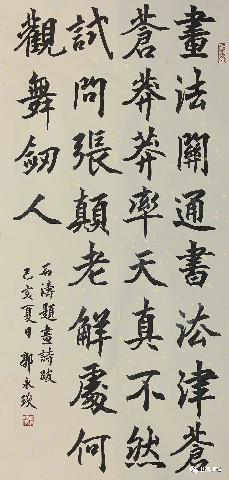 畫法關通書法津蒼
蒼莽莽率天真不然
試問張顛老解處何
觀舞劒人
石濤題畫詩跋
己亥夏日 郭永琰